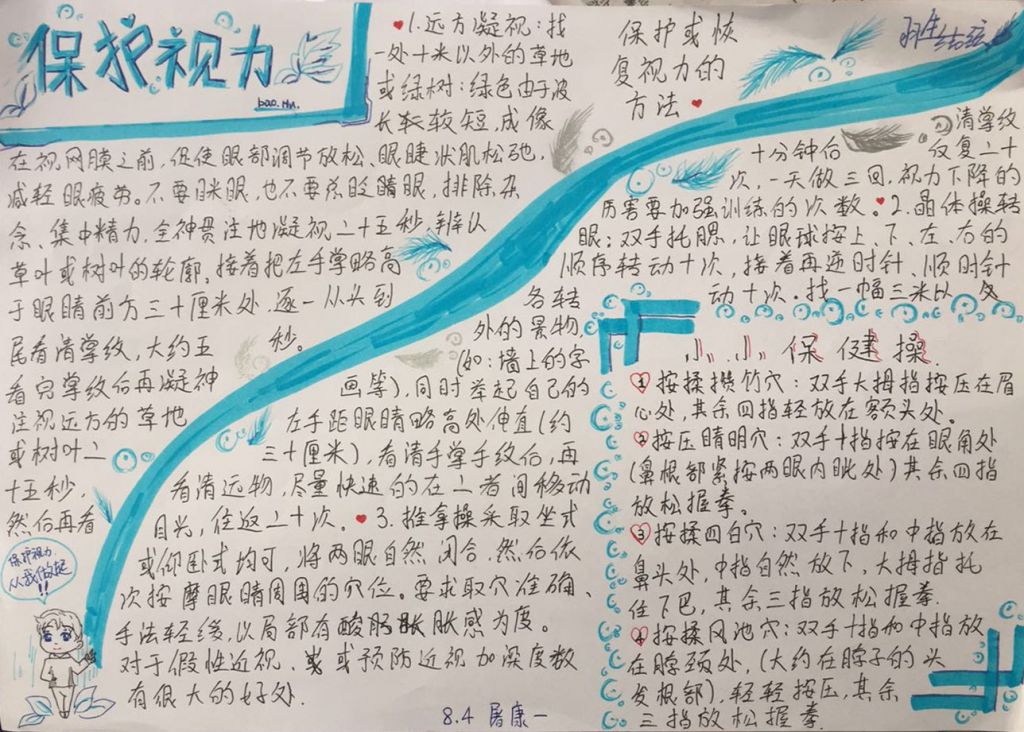 保护视力
bao.Hu.
1.远方凝视:找
一处十米以外的草地
或绿树:绿色由于波
长较短,成像
在视网膜之前,促使眼部调节放松、眼睫状肌松弛,
减轻眼疲劳。不要眯眼,也不要总眨睛眼,排除杂
念、集中精力,全神贯注地凝视二十五秒,辨认
草叶或树叶的轮廓。接着把左手掌略高
于眼睛前方三十厘米处,逐一从头到
尾看清掌纹,大约五
秒。
看完掌纹后再凝神
注视远方的草地
或树叶二
十五秒,
然后再看
保护或恢
复视力的
方法
清掌纹
十分钟后 反复二十
次,一天做三回,视力下降的
厉害要加强训练的次数。2.晶体操转
眼:双手托腮,让眼球按上、下、左、右的
顺序转动十次,接着再逆时针、顺时针
各转动十次。找一幅三米以 处
外的景物,
(如:墙上的字
画等),同时举起自己的
左手距眼睛略高处伸直(约
三十厘米),看清手掌手纹后,再
看清远物,尽量快速的在二者间移动
目光,往返二十次。3.推拿操采取坐式
或仰卧式均可,将两眼自然闭合,然后依
次按摩眼睛周围的穴位。要求取穴准确、
手法轻缓,以局部有酸胀感为度。
对于假性近视、或预防近视加深度数
有很大的好处.
小小保健操
①按揉攒竹穴:双手大拇指按压在眉
心处,其余四指轻放在额头处。
②按压睛明穴:双手十指按在眼角处
(鼻根部紧按两眼内眦处)其余四指
放松握拳。
③按揉四白穴:双手十指和中指放在
鼻头处,中指自然放下,大拇指托
住下巴,其余三指放松握拳.
④按揉风池穴:双手十指和中指放
在脖颈处,(大约在脖子的头
发根部),轻轻按压,其余
三指放松握拳.
保护视力.
从我做起
!!
8.4 屠康一